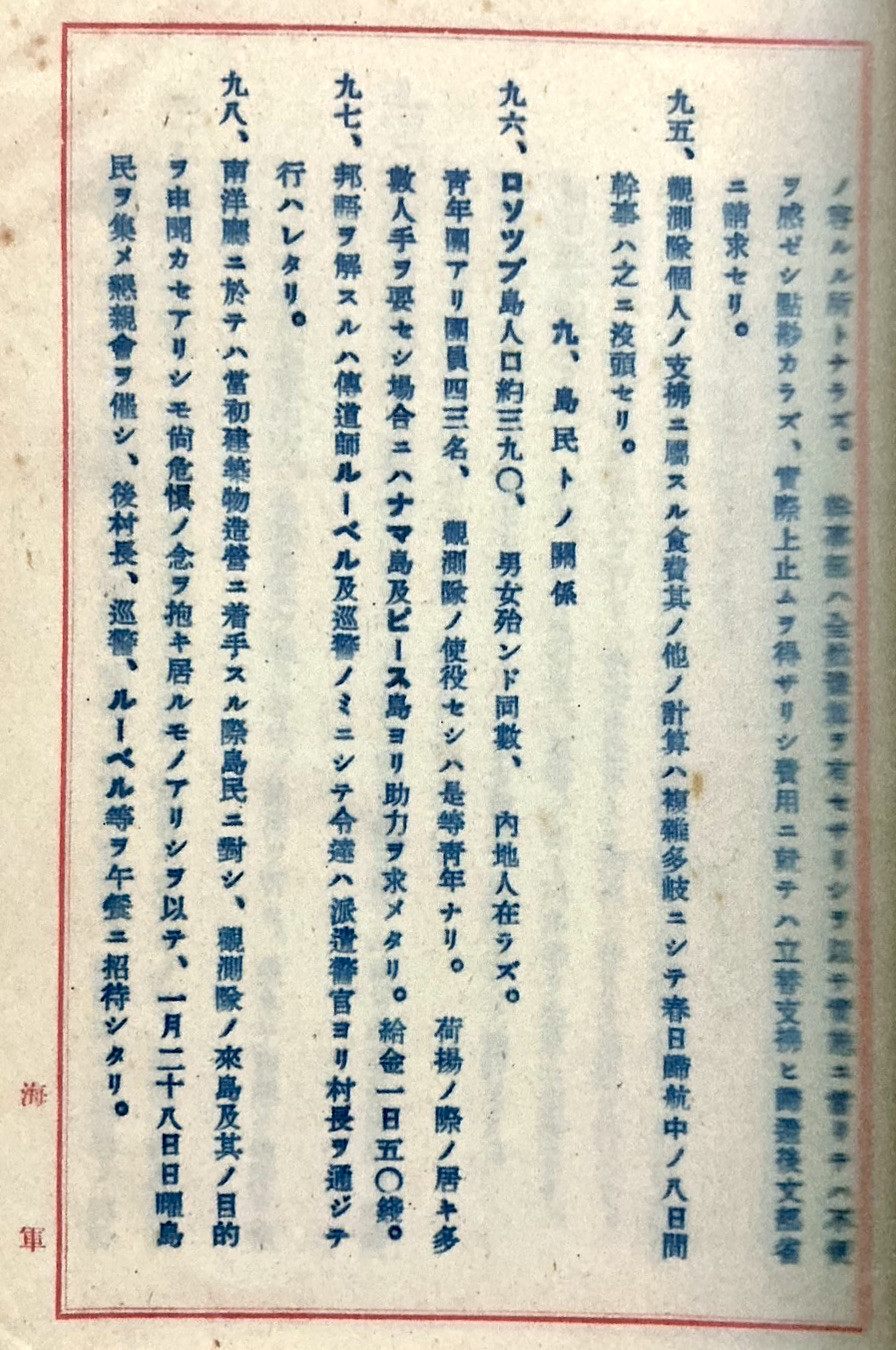 ノ容ルル所トナラズ。 幹事部ハ全然豫算ヲ有セザリシヲ以テ實施ニ當リテハ不便
ヲ感ゼシ點尠カラズ、實際上止ムヲ得ザリシ費用ニ就テハ立替支拂ヒ歸還後文部省
ニ請求セリ。
九五、觀測隊個人ノ支拂ニ屬スル食費其ノ他ノ計算ハ複雜多岐ニシテ春日歸航中ノ八日間
幹事ハ之ニ沒頭セリ。
九、島民トノ關係
九六、ロソツプ島人口約三九〇、 男女殆ンド同數、 內地人在ラズ。
靑年團アリ團員四三名、 觀測隊ノ使役セシハ是等靑年ナリ。 荷揚ノ際ノ居キ多
數人手ヲ要セシ場合ニハナマ島及ピース島ヨリ助力ヲ求メタリ。給金一日五〇錢。
九七、邦語ヲ解スルハ傳道師ルーベル及巡警ノミニシテ令達ハ派遣警官ヨリ村長ヲ通ジテ
行ハレタリ。
九八、南洋廳ニ於テハ當初建築物造營ニ着手スル際島民ニ對シ、觀測隊ノ來島及其ノ目的
ヲ申聞カセアリシモ尙危惧ノ念ヲ抱キ居ルモノアリシヲ以テ、一月二十八日日曜島
民ヲ集メ懇親會ヲ催シ、後村長、巡警、ルーベル等ヲ午餐ニ招待シタリ。
海軍